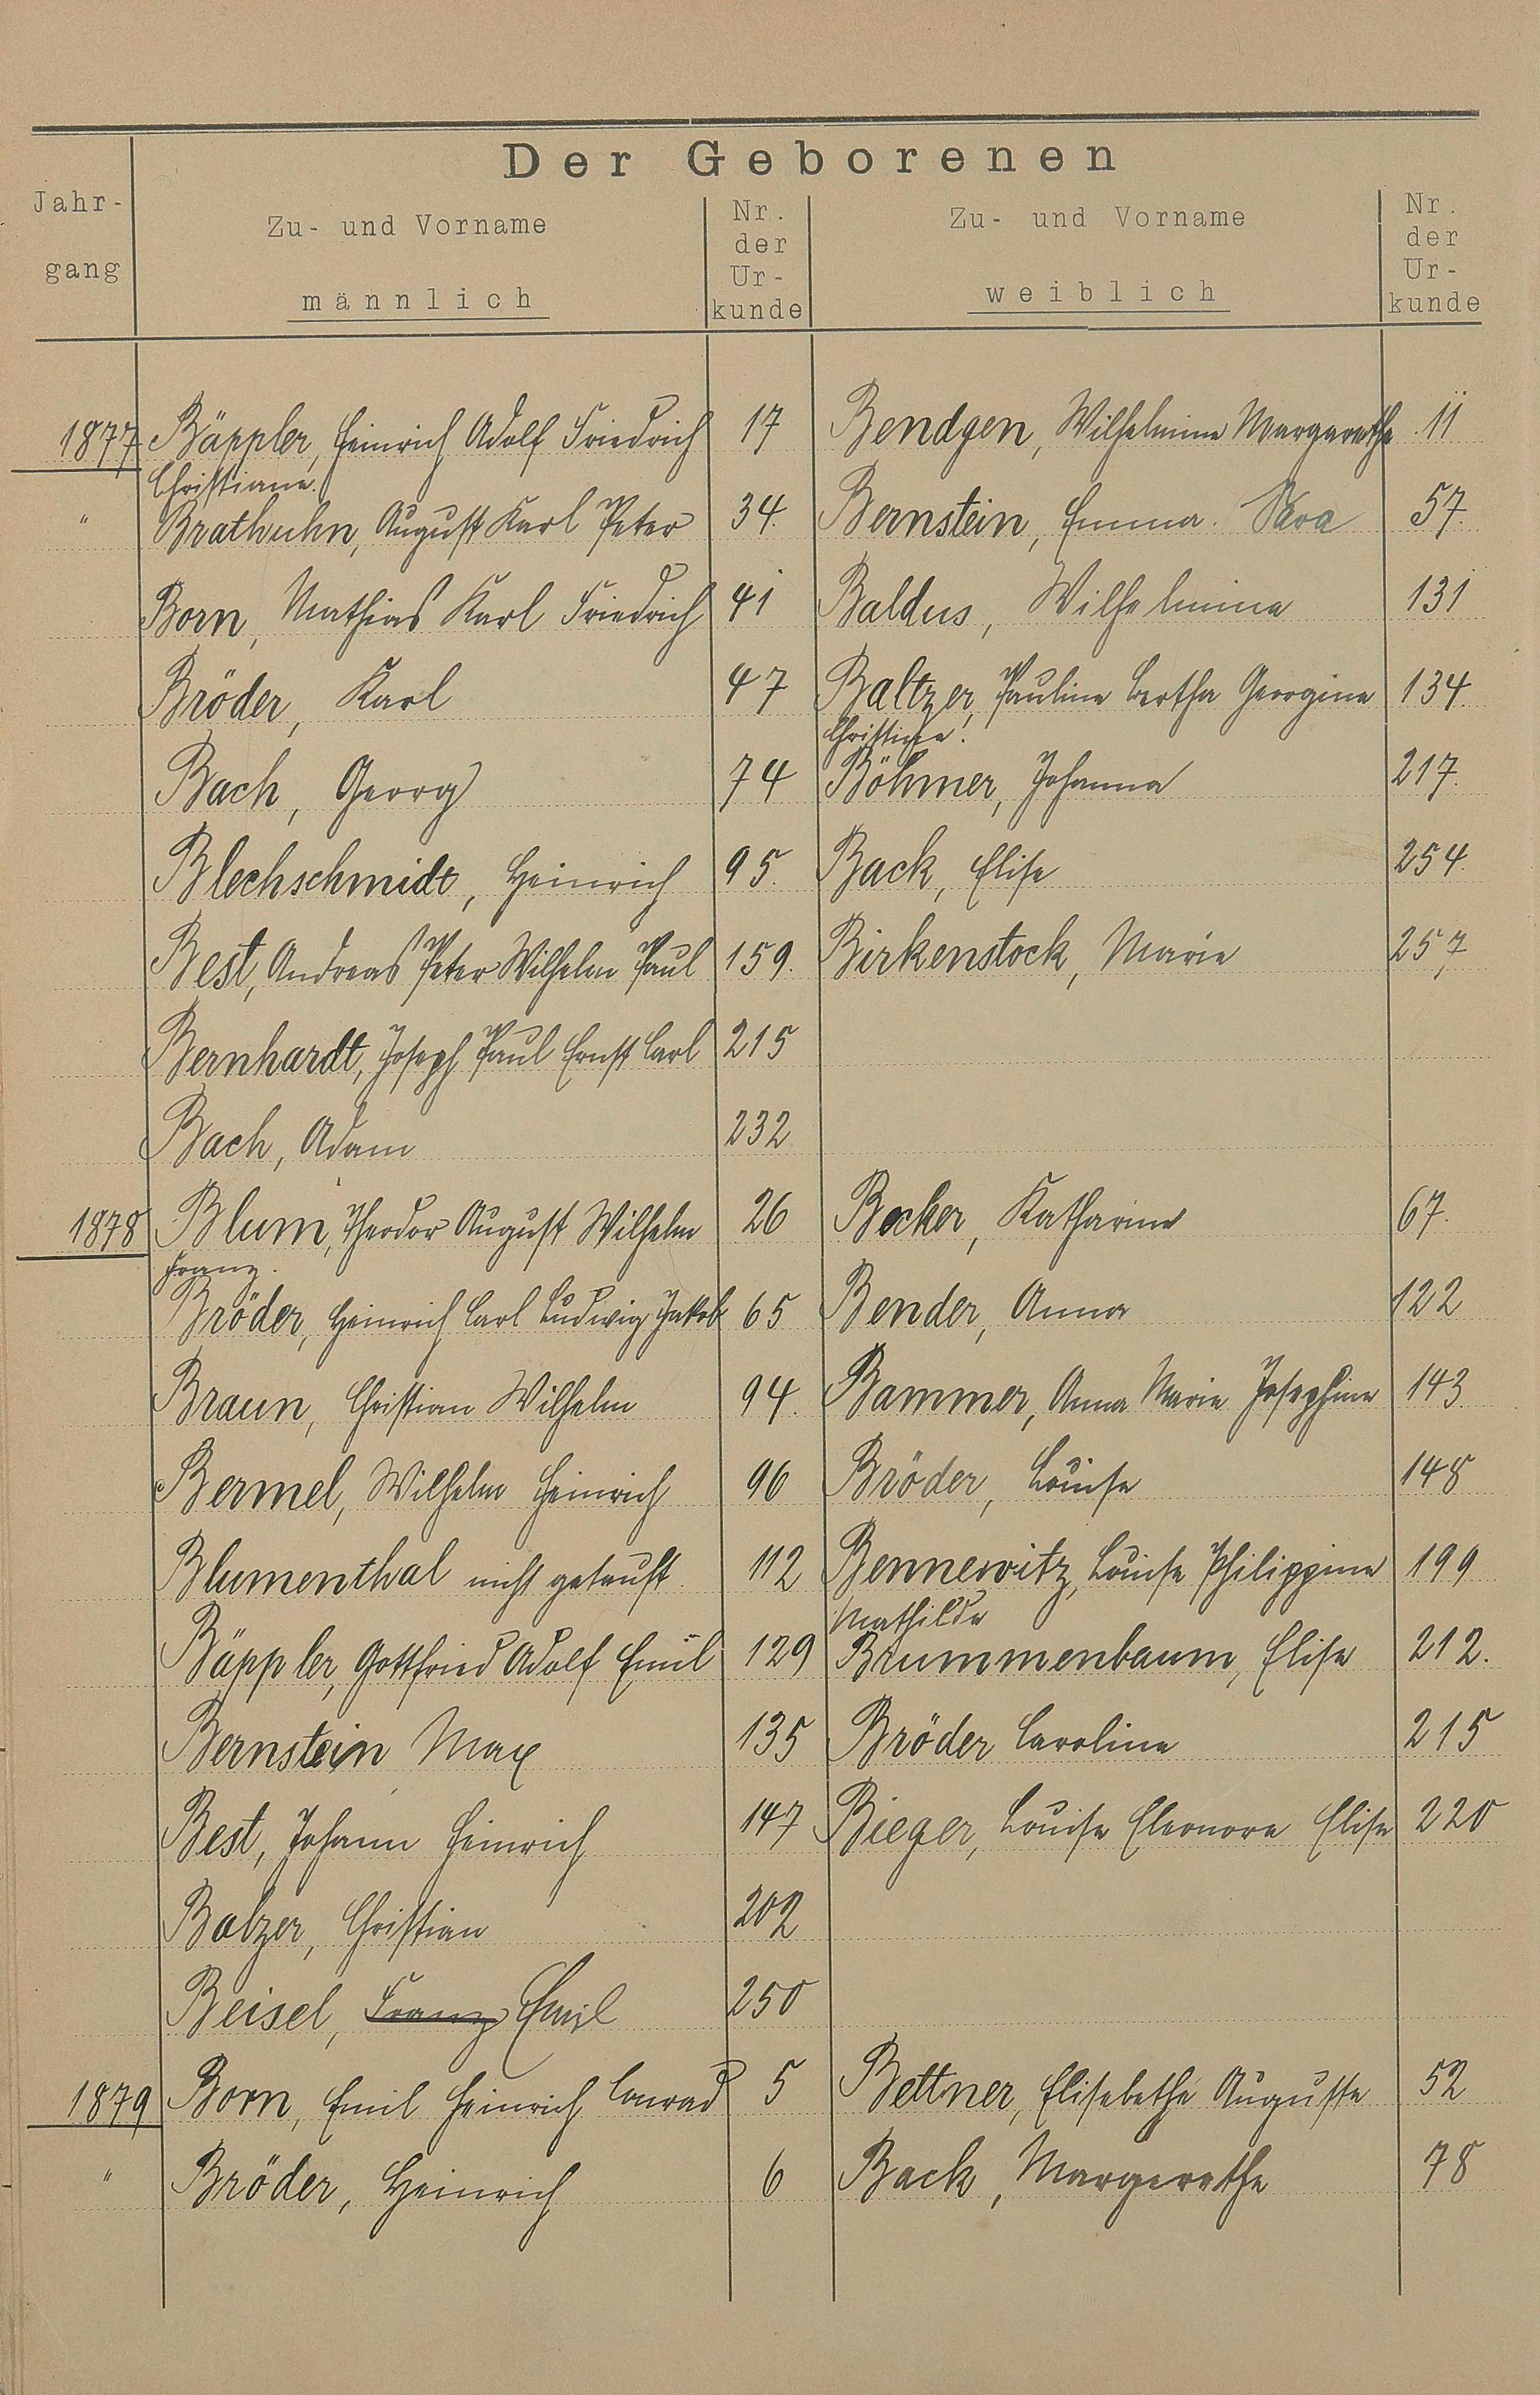 Der Geborenen
Jahr-
gang
Zu- und Vorname
männlich
Nr.
der
Ur-
kunde
Zu- und Vorname
weiblich
Nr.
der
Ur-
kunde
1877 Bäppler, Heinrich Adolf Friedrich 17 Bendgen, Wilhelmine Margarethe 11
Christiane.
" Brathuhn, August Karl Peter 34. Bernstein, Emma. Sara 57.
Born, Mathias Karl Friedrich 41 Baldus, Wilhelmine 131
Bröder, Karl 47 Baltzer, Pauline Bertha Georgine 134.
Christine.
Bach, Georg 74 Böhmer, Johanna 217.
Blechschmidt, Heinrich 95. Back, Elise 254.
Best, Andreas Peter Wilhelm Paul 159. Birkenstock, Marie 257
Bernhardt, Joseph Paul Ernst Carl 215
Bach, Adam 232
1878 Blum, Theodor August Wilhelm 26 Becker, Katharine 67.
Franz.
Bröder, Heinrich Carl Ludwig Jakob 65 Bender, Anna 122
Braun, Christian Wilhelm 94. Bammer, Anna Marie Josephine 143.
Bermel, Wilhelm Heinrich 96 Bröder, Louise 148
Blumenthal nicht getauft. 112 Bennewitz, Louise Philippine 199
Mathilde
Bäppler, Gottfried Adolf Emil 129 Brummenbaum, Elise 212.
Bernstein Max 135 Bröder Caroline 215
Best, Johann Heinrich 147 Bieger, Louise Eleonore Elise 220
Balzer, Christian 202
Beisel, Franz Emil 250
1879 Born, Emil Heinrich Conrad 5 Bettner, Elisabethe Auguste 52
" Bröder, Heinrich 6 Back, Margarethe 78